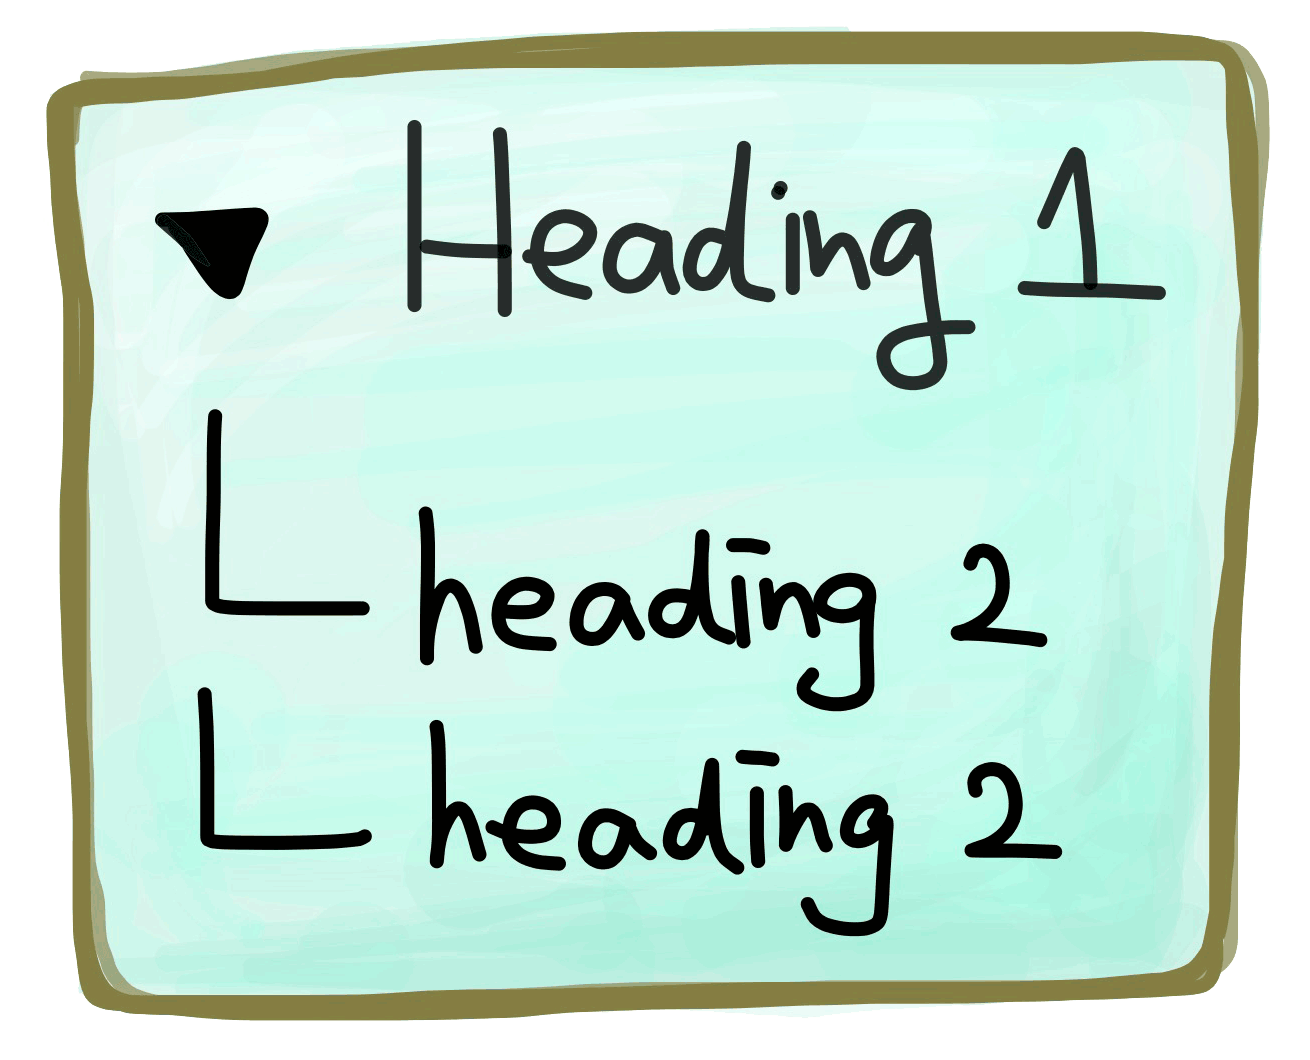 Heading 1
heading 2
heading 2